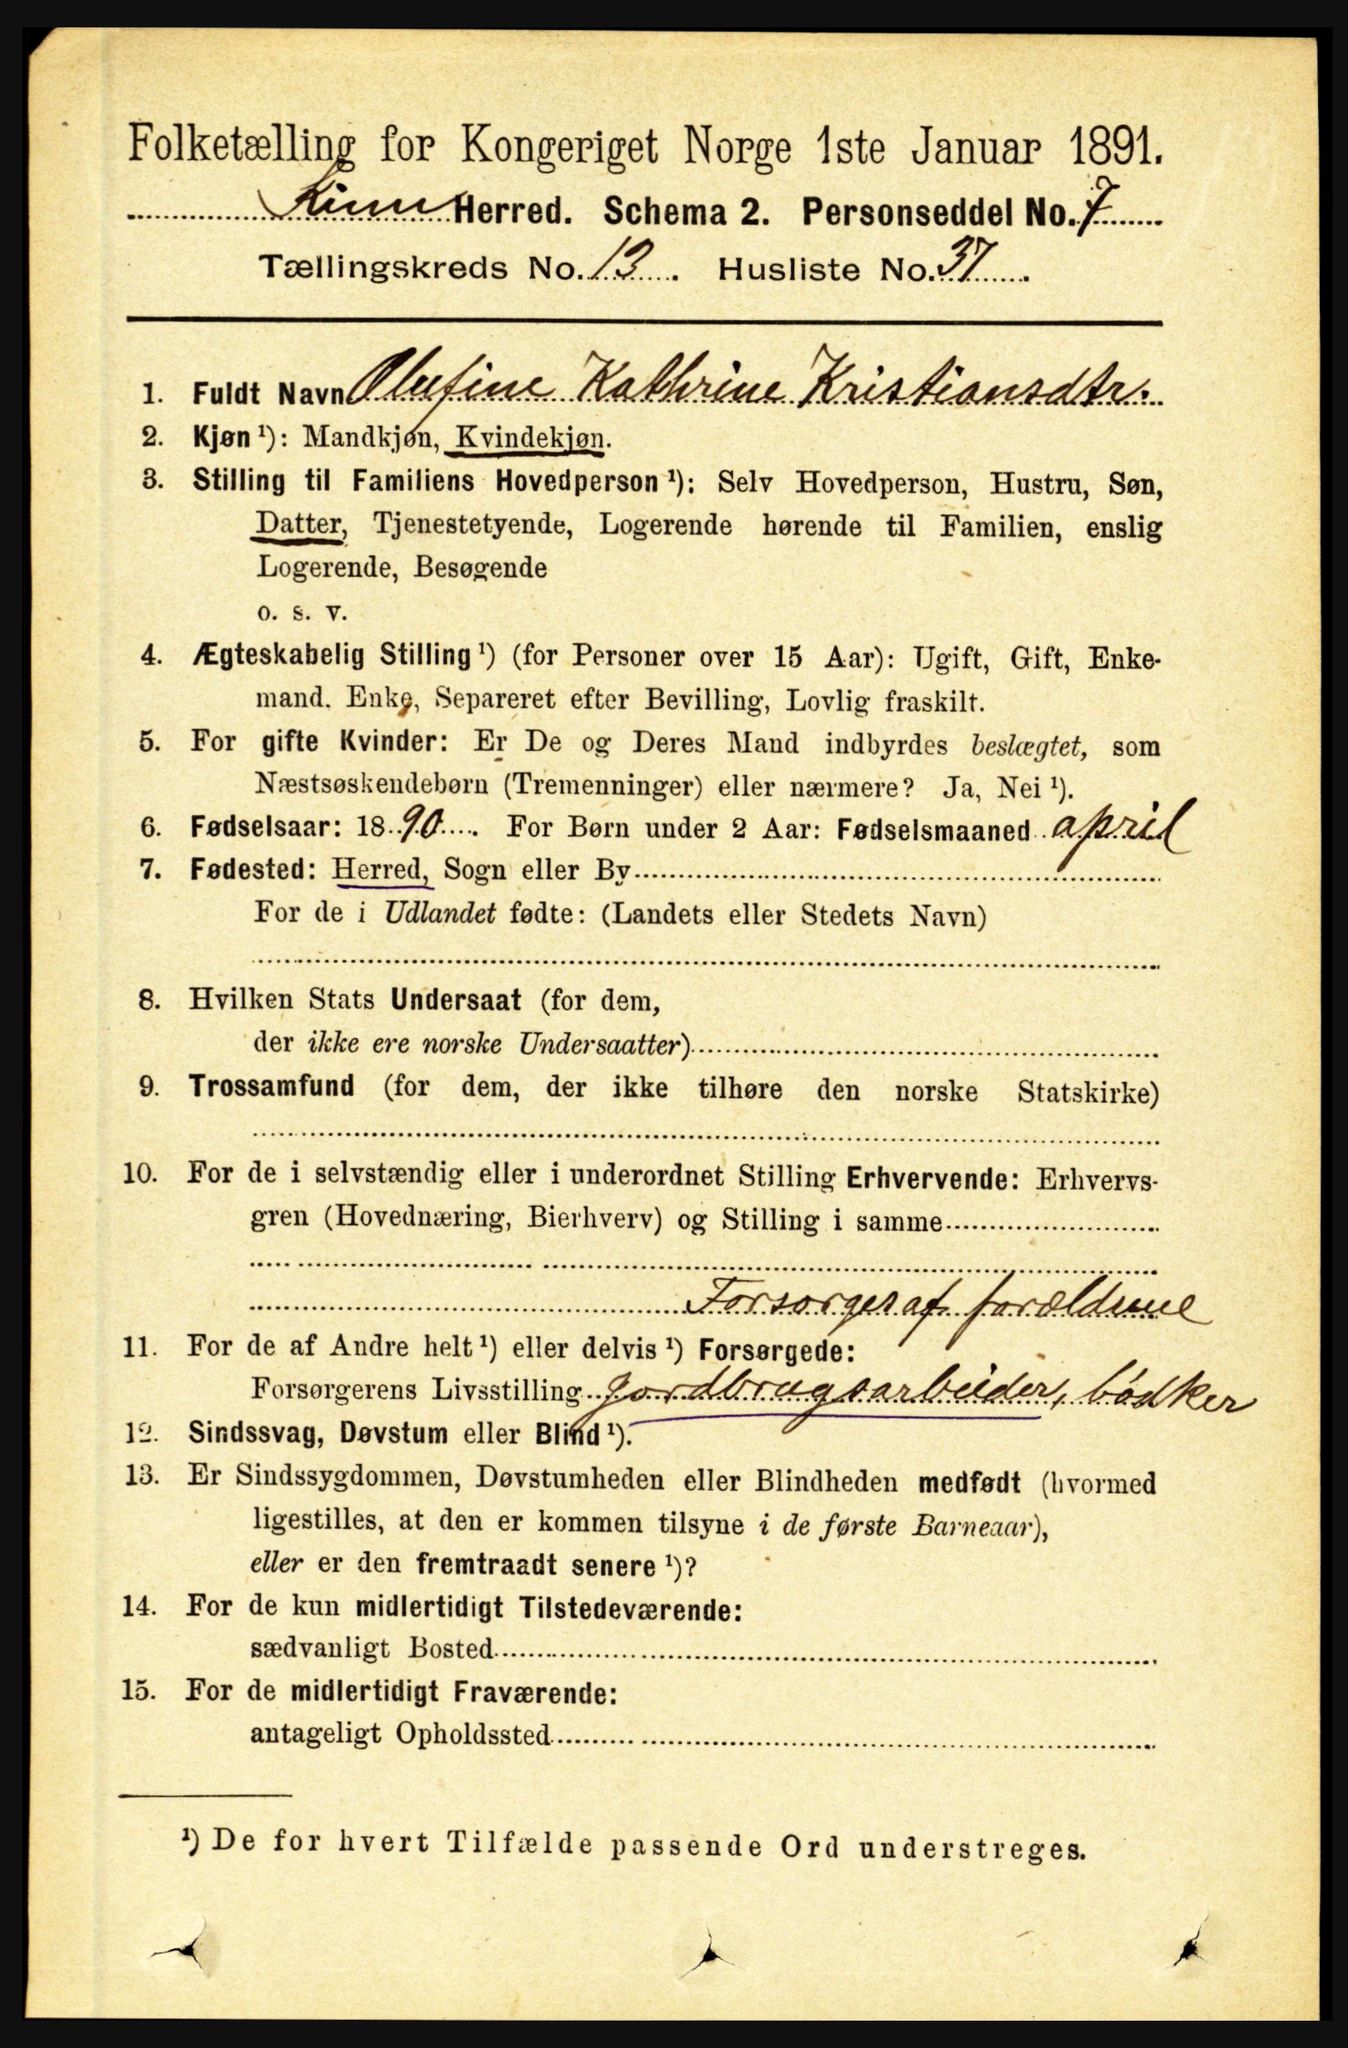 Folketælling for Kongeriget Norge 1ste Januar 1891.
Kinn Herred. Schema 2. Personseddel No. 7
Tællingskreds No. 13. Husliste No. 37.
1. Fuldt Navn Olufine Kathrine Kristiansdtr.
2. Kjøn ¹): Mandkjøn, Kvindekjøn.
3. Stilling til Familiens Hovedperson ¹): Selv Hovedperson, Hustru, Søn,
Datter, Tjenestetyende, Logerende hørende til Familien, enslig
Logerende, Besøgende
o. s. v.
4. Ægteskabelig Stilling ¹) (for Personer over 15 Aar): Ugift, Gift, Enke-
mand, Enke, Separeret efter Bevilling, Lovlig fraskilt.
5. For gifte Kvinder: Er De og Deres Mand indbyrdes beslægtet, som
Næstsøskendebørn (Tremenninger) eller nærmere? Ja, Nei ¹).
6. Fødselsaar: 1890. For Børn under 2 Aar: Fødselsmaaned april
7. Fødested: Herred, Sogn eller By
For de i Udlandet fødte: (Landets eller Stedets Navn)
8. Hvilken Stats Undersaat (for dem,
der ikke ere norske Undersaatter)
9. Trossamfund (for dem, der ikke tilhøre den norske Statskirke)
10. For de i selvstændig eller i underordnet Stilling Erhvervende: Erhvervs-
gren (Hovednæring, Bierhverv) og Stilling i samme
Forsorges af forældrene
11. For de af Andre helt ¹) eller delvis ¹) Forsørgede:
Forsørgerens Livsstilling jordbrugsarbeider, bødker
12. Sindssvag, Døvstum eller Blind ¹).
13. Er Sindssygdommen, Døvstumheden eller Blindheden medfødt (hvormed
ligestilles, at den er kommen tilsyne i de første Barneaar),
eller er den fremtraadt senere ¹)?
14. For de kun midlertidigt Tilstedeværende:
sædvanligt Bosted
15. For de midlertidigt Fraværende:
antageligt Opholdssted
¹) De for hvert Tilfælde passende Ord understreges.